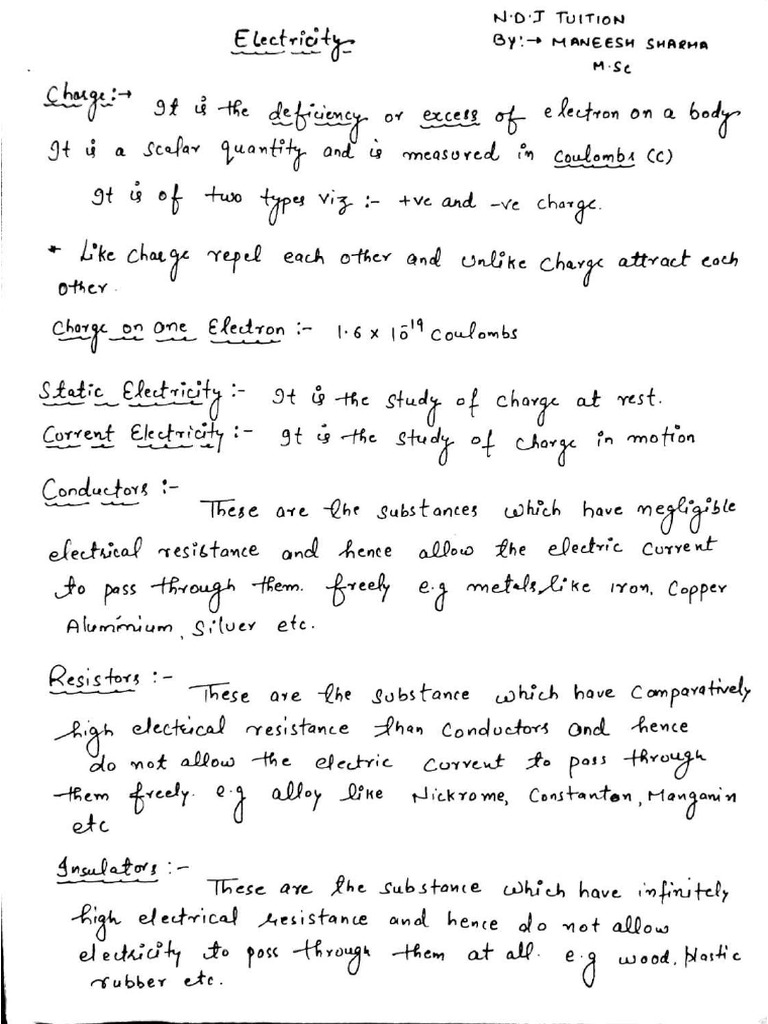 Electricity
N.D.J TUITION
By:→ MANEESH SHARMA
M.Sc
Charge:→ It is the deficiency or excess of electron on a body
It is a scalar quantity and is measured in Coulombs (C)
It is of two types viz :- +ve and -ve charge.
* Like charge repel each other and unlike charge attract each
other.
Charge on one Electron :- 1.6 x 10⁻¹⁹ Coulombs
Static Electricity :- It is the study of charge at rest.
Current Electricity :- It is the study of charge in motion
Conductors :-
These are the substances which have negligible
electrical resistance and hence allow the electric current
to pass through them. freely e.g metals, like iron, Copper
Aluminium, Silver etc.
Resistors :-
These are the substance which have comparatively
high electrical resistance than conductors and hence
do not allow the electric current to pass through
them freely. e.g alloy like Nickrome, Constanton, Manganin
etc
Insulators :-
These are the substance which have infinitely
high electrical resistance and hence do not allow
electricity to pass through them at all. e.g wood, plastic
rubber etc.